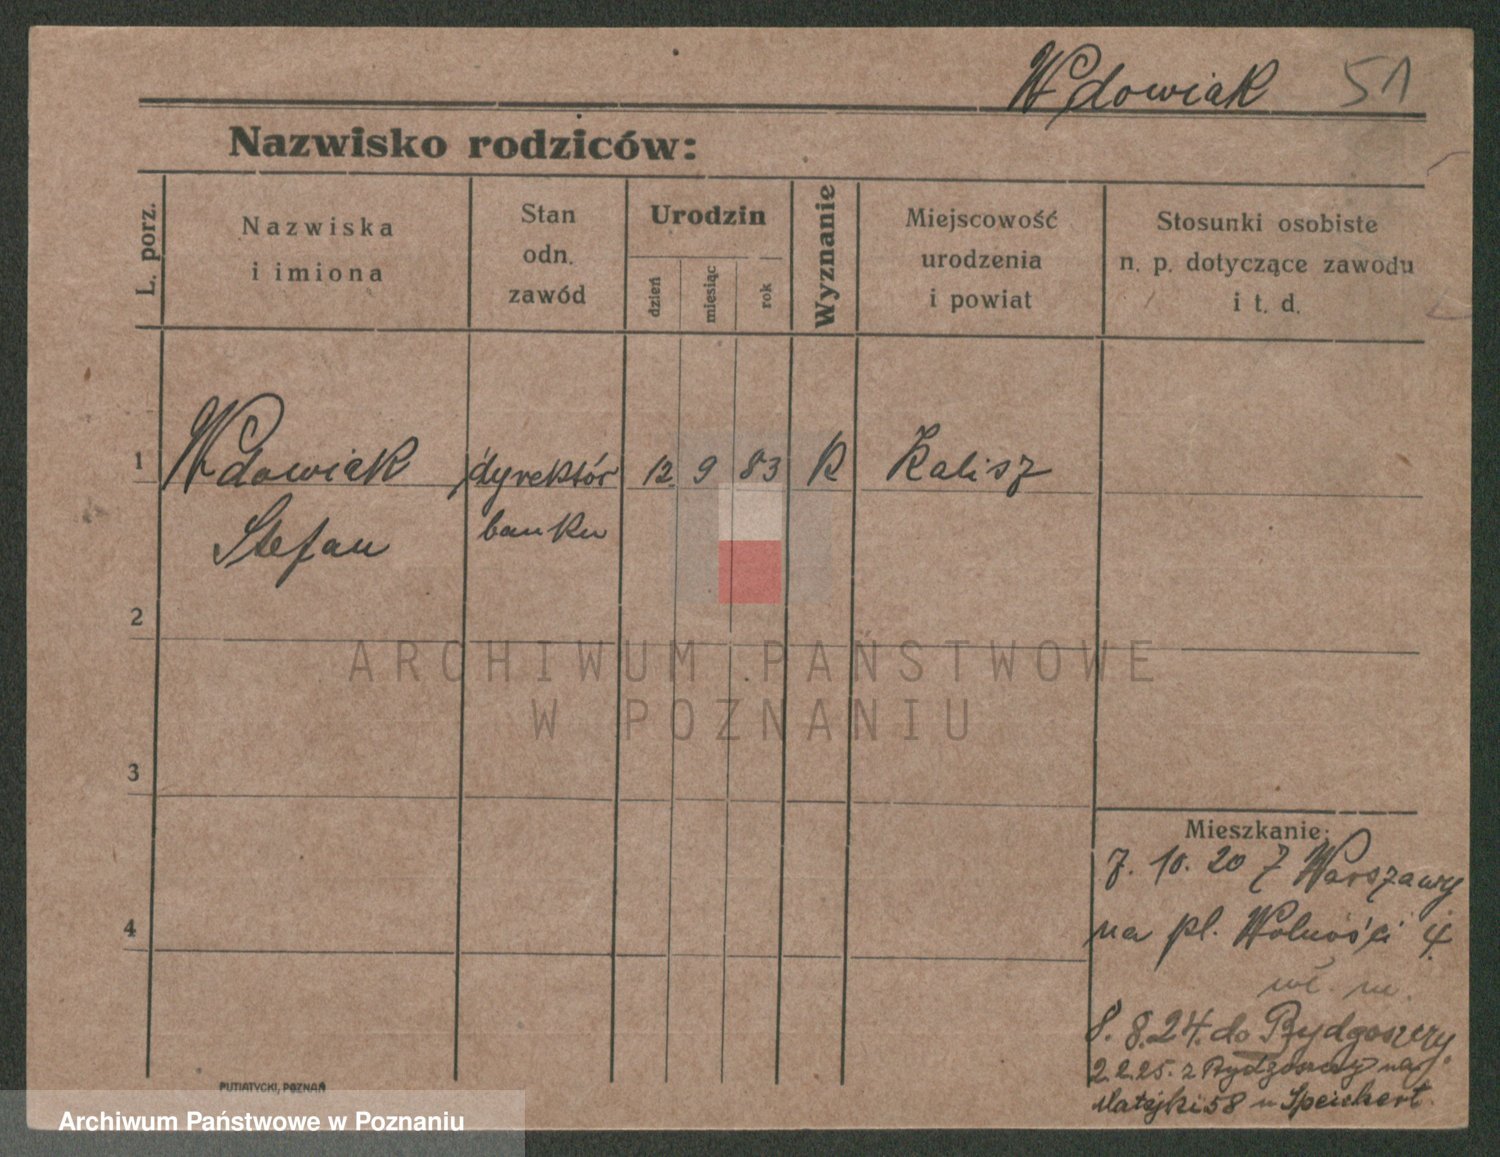 Wdowiak 51
Nazwisko rodziców:
L. porz.
Nazwiska
i imiona
Stan
odn.
zawód
Urodzin
dzień
miesiąc
rok
Wyznanie
Miejscowość
urodzenia
i powiat
Stosunki osobiste
n. p. dotyczące zawodu
i t. d.
1 Wdowiak dyrektór 12. 9 83 K Kalisz
Stefan banku
2
ARCHIWUM PAŃSTWOWE
W POZNANIU
3
Mieszkanie:
7. 10. 20 z Warszawy
4 na pl. Wolności 4.
wł. m.
8. 8.24. do Bydgoszczy.
2.2.25. z Bydgoszczy na
Matejki 58 u Speichert.
PUTIATYCKI, POZNAŃ
Archiwum Państwowe w Poznaniu